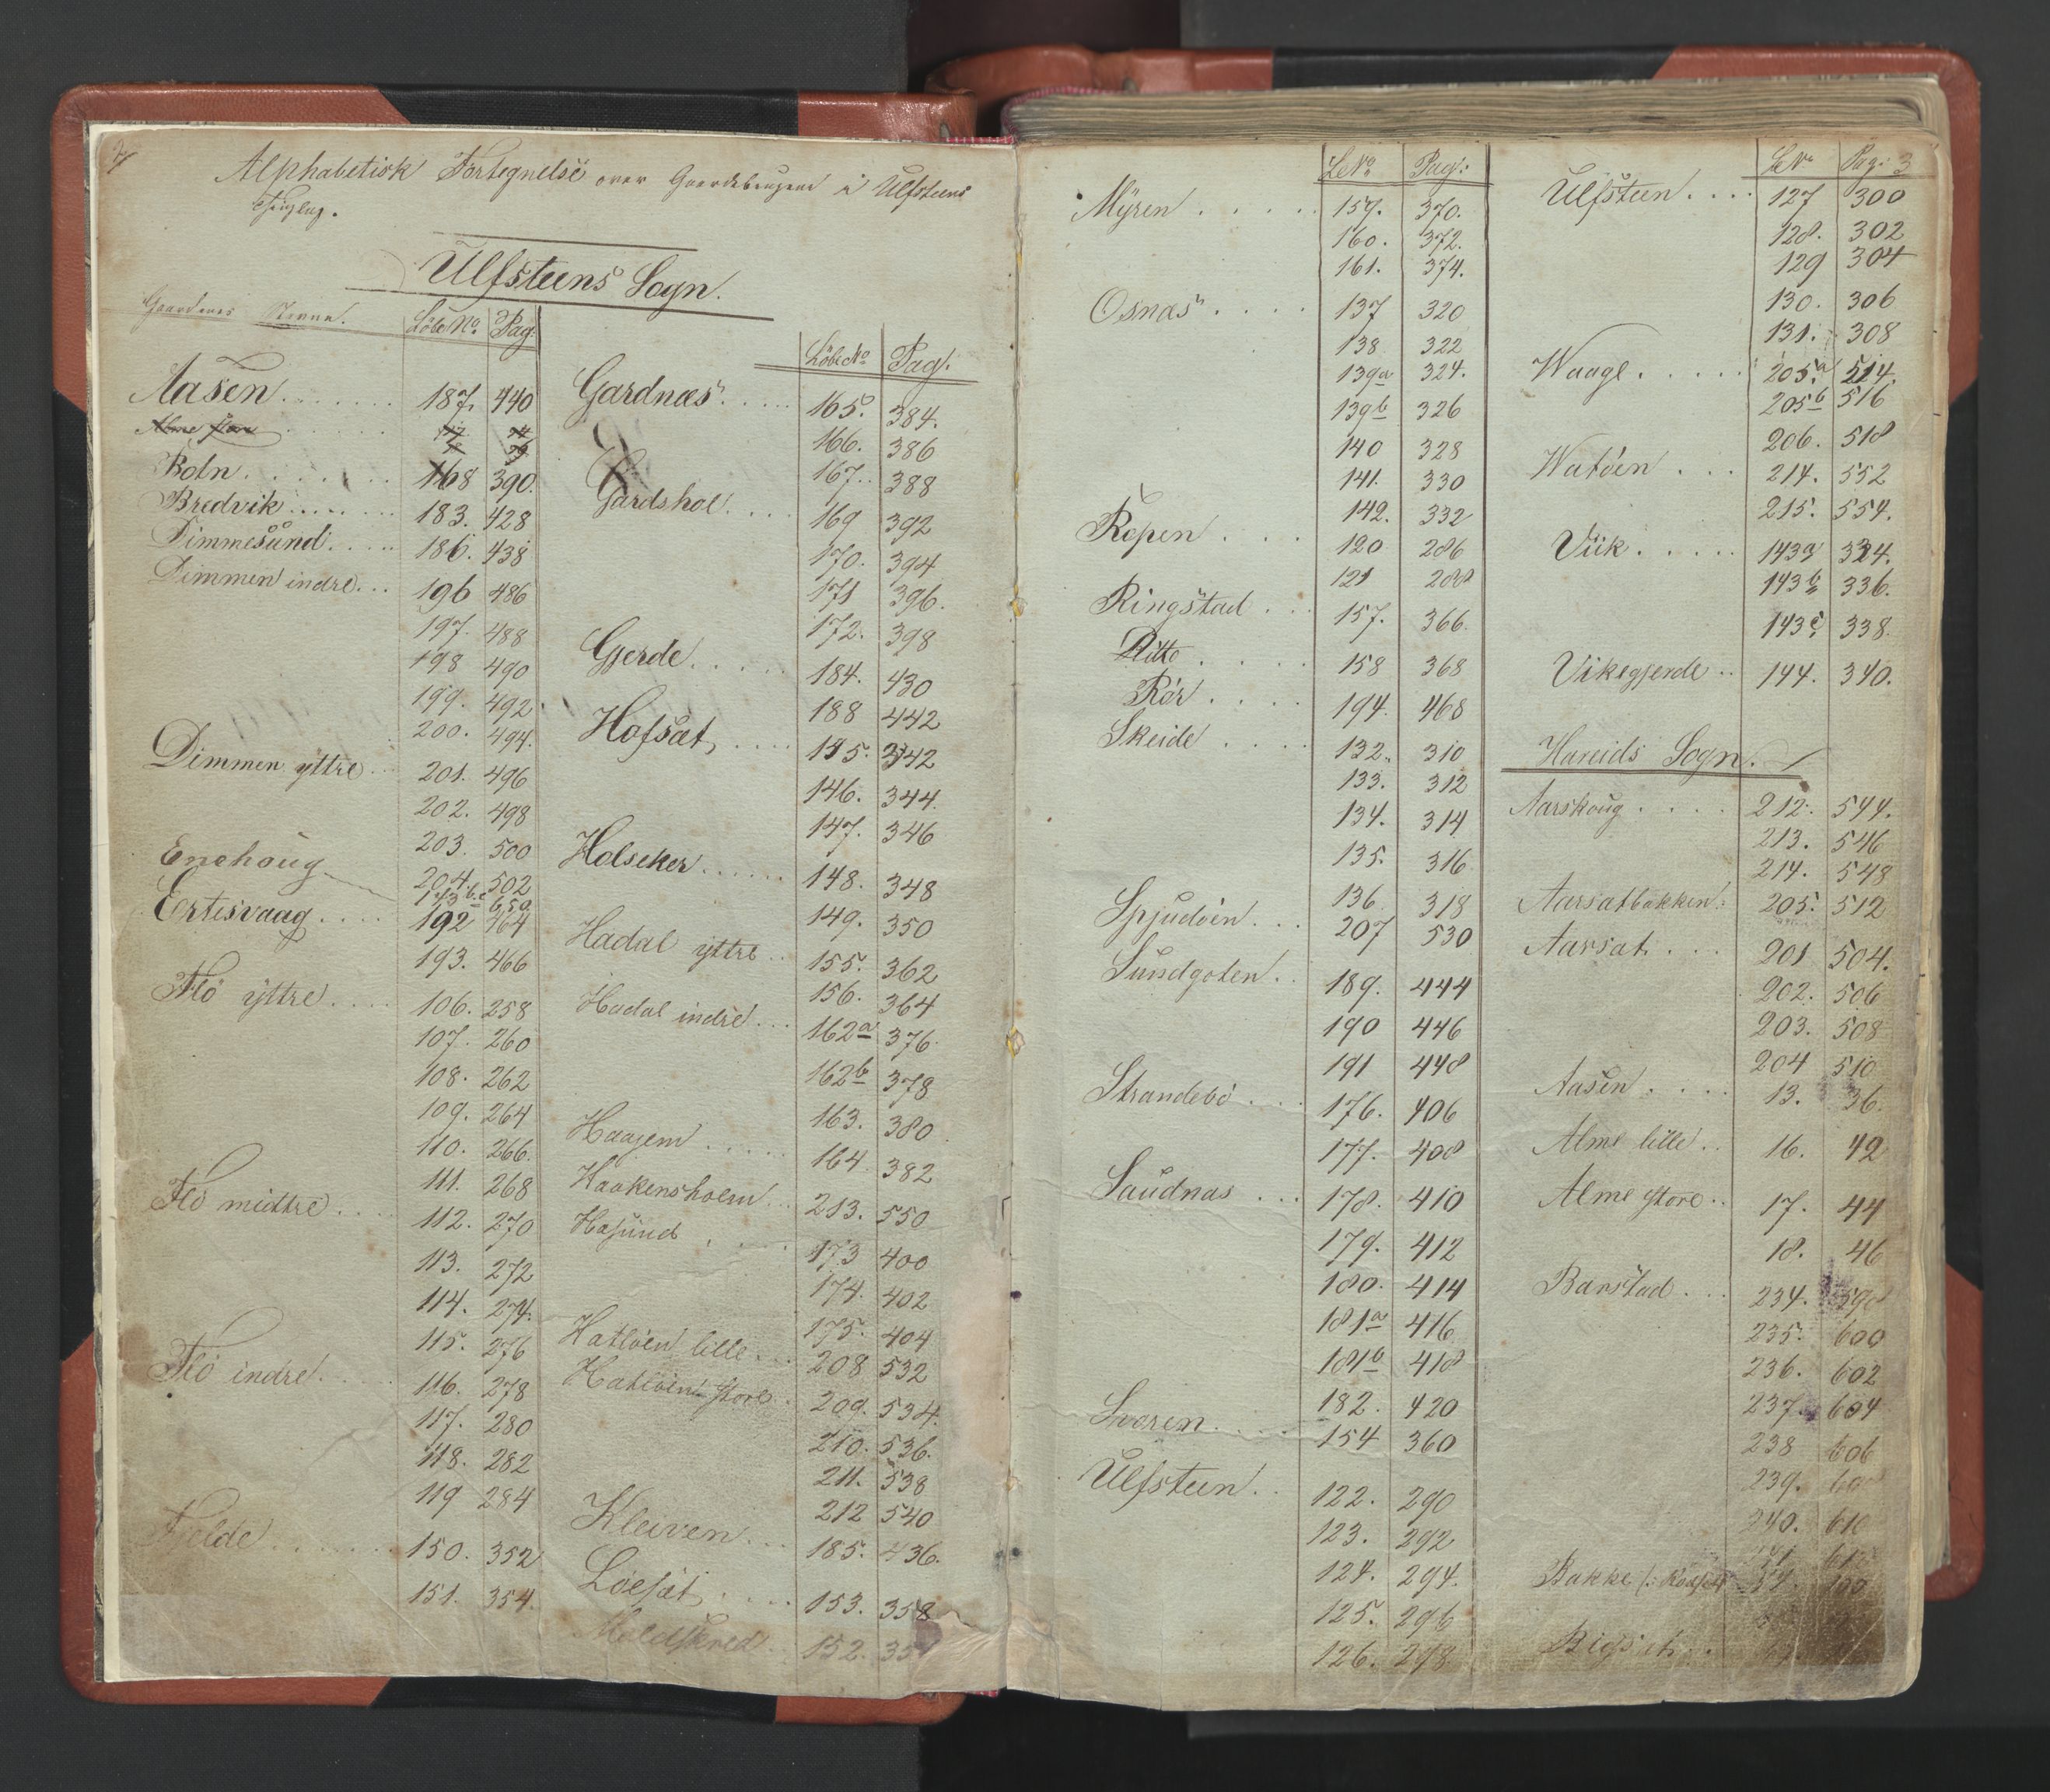 Alphabetisk Fortegnelse over Gaardebrugene i Ulfsteens
Thinglag.
Ulfsteens Sogn.
Gaardenes Navne. Løbe No. Pag.
Aasen 187. 440
Alme store
Botn 168 390.
Bredvik 183. 428
Dimmesund 186. 438
Dimmen indre 196 486
197. 488
198 490
199. 492
200. 494.
Dimmen yttre 201. 496
202. 498
203. 500
204. 502
Enehoug 143 b.c 650
Ertesvaag 192 464
193. 466
Flö yttre 106. 258
107. 260
108. 262
109. 264
110. 266.
111. 268
Flö midtre 112. 270
113. 272
114. 274.
115. 276
Flö indre 116. 278
117. 280
118. 282
119 284
Fjelde 150. 352
151. 354.
Löbe No Pag.
Gardnæs 165. 384.
166. 386
167. 388
Gardshol 169 392
170. 394
171 396.
172. 398
Gjerde 184. 430
188 442
Hofsæt 145. 342
146. 344.
147. 346
Holseker 148. 348
149. 350
Hadal yttre 155. 362
156. 364
Hadal indre 162a 376.
162b 378
163. 380
Haajem 164. 382
Haakensholm 213. 550
Hasund 173 400
174. 402
175. 404
Hatløen lille 208 532
Hatløen store 209. 534.
210. 536.
211. 538
212 540
Kleiven 185. 436.
Löesæt 153. 358
Moldskred 152. 35
LNo Pag:
Myren 159. 370.
160. 372.
161. 374.
Osnæs 137 320
138 322
139a 324.
139b 326
140 328
141. 330
142. 332
Ropen 120 286
121 288
Ringstad 157. 366.
Ditto 158 368
Rör 194. 468
Skeide 132. 310
133. 312
134. 314
135. 316
136. 318
Spjudöen 207 530
Sundgoten 189. 444
190 446
191 448
Strandebö 176. 406
177. 408
Saudnæs 178. 410
179. 412
180. 414
181a 416
181b 418
182. 420
Svoren 154 360
Ulfsteen 122. 290
123. 292
124. 294.
125. 296
126. 298
LNo Pag: 3
Ulfsteen 127 300
128. 302
129 304
130. 306
131. 308
Waage 205.a 514.
205b 516
206. 518
Watöen 214. 552
215. 554.
Viik 143a 334.
143b 336.
143c 338.
Vikegjerde 144. 340.
Hareids Sogn.
Aarskoug 212. 544.
213. 546
214. 548
Aarsætbakken 205. 512
Aarsæt 201 504.
202. 506
203. 508
204 510
Aasen 13. 36.
Alme lille 16. 42
Alme store 17. 44
18. 46
Barstad 234. 598
235. 600
236. 602
237. 604
238 606
239. 608
240. 610
Bakke
Bigset